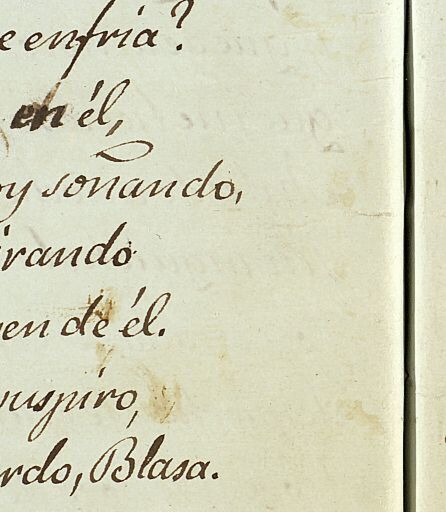 e enfria?
en él,
oy soñando,
irando
en de él.
suspiro,
rdo, Blasa.